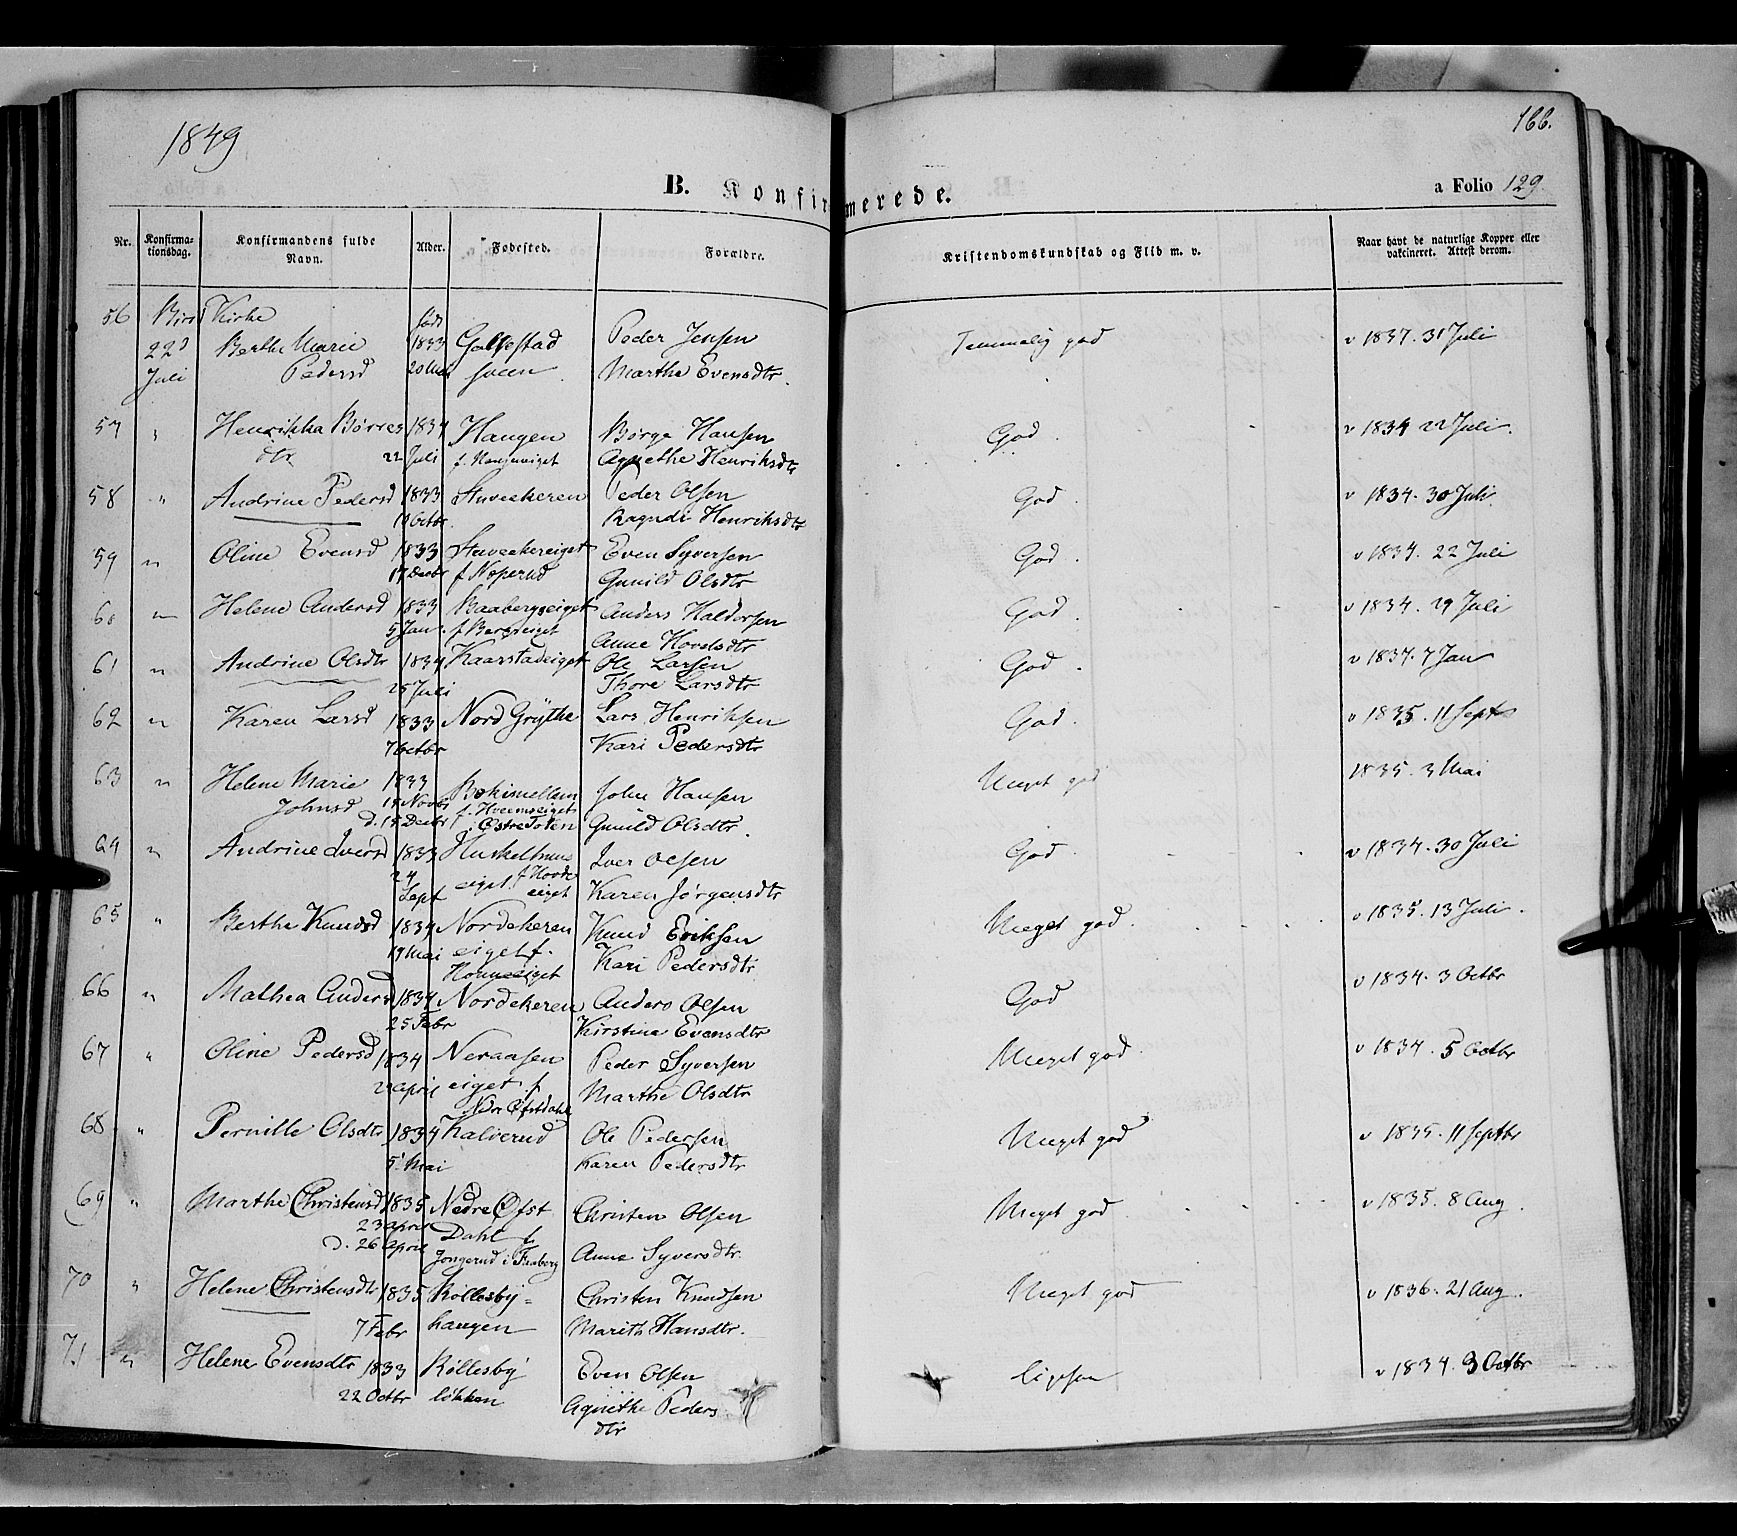 1849
166.
B. Konfirmerede.
a Folio 129.
Nr. Konfirmationsdag. Konfirmandens fulde Navn. Alder. Fødested. Forældre. Kristendomskundskab og Flid m. v. Naar havt de naturlige Kopper eller vakcineret. Attest derom.
56 Biri Kirke født
22d Berthe Marie 1833 Peder Jensen Temmelig god v 1837. 31 Juli
Juli Pedersd sveen Marthe Evensdtr.
57 " Henrikka Børres 1834 Haugen Børge Hansen God. v 1834 22 Juli.
dtr 22 Juli Agnethe Henriksdtr
58 " Andrine Pedersd 1833 Stuveekeren Peder Olsen God. v 1834. 30 Juli.
Octbr. Ragndi Henriksdtr
59 " Oline Evensd 1833 Stuveekereiget Even Syversen God. v 1834. 22 Juli
17 Decbr f. Noperud Gunild Olsdtr
60 " Helene Andersd 1833 Baabergseiget Anders Haldorsen God. v 1834. 29 Juli
5 Jan. f. Bergseiget Anne Hovelsdtr
61 " Andrine Olsdtr 1834 Kaarstadeiget Ole Larsen God. v 1837. 7 Jan
25 Juli Thore Larsdtr
62 " Karen Larsd 1833 Nord Grythe Lars Henriksen God. v 1835. 11 Septr
7 Octbr Kari Pedersdtr
63 " Helene Marie 1833 John Hansen Meget god 1835. 3 Mai
Johnsd Novbr f. Hveemseiget
d. Decbr Østre Toten Gunild Olsdtr.
64 " Andrine Iversd 1833 Iver Olsen God. v 1834. 30 Juli
24 Sept eiget f. eiget Karen Jørgensdtr
65 " Berthe Knudsd 1834 Nordekeren Knud Eriksen Meget god. v 1835. 13 Juli.
19 Mai eiget f. Kari Pedersdtr
66 " Mathea Andersd 1834 Nordekeren Anders Olsen God v 1834. 3 Octbr
25 Febr Kirstine Evensdtr
67 " Oline Pedersd 1834 Neraasen Peder Syversen Meget god. v 1834. 5 Octbr
April eiget f. Marthe Olsdtr
Nedre Øfstdahl
68 " Pernille Olsdtr 1834 Kalverud Ole Pedersen Meget god v 1835. 11 Septbr
5 Mai Karen Pedersdtr
69 " Marthe Christensd 1835 Nedre Øfst Christen Olsen Meget god. v 1835. 8 Aug.
23 April Dahl f.
d. 26 April Jongerud i Faaberg Anne Syversdtr.
70 " Helene Christensdtr 1835 Røllesby- Christen Knudsen Meget god v 1836. 21 Aug.
7 Febr haugen Marith Hansdtr.
71 " Helene Evensdtr 1833 Røllesby Even Olsen ligesom v 1834. 3 Octbr
22 Octbr løkken Agnethe Peders
dtr